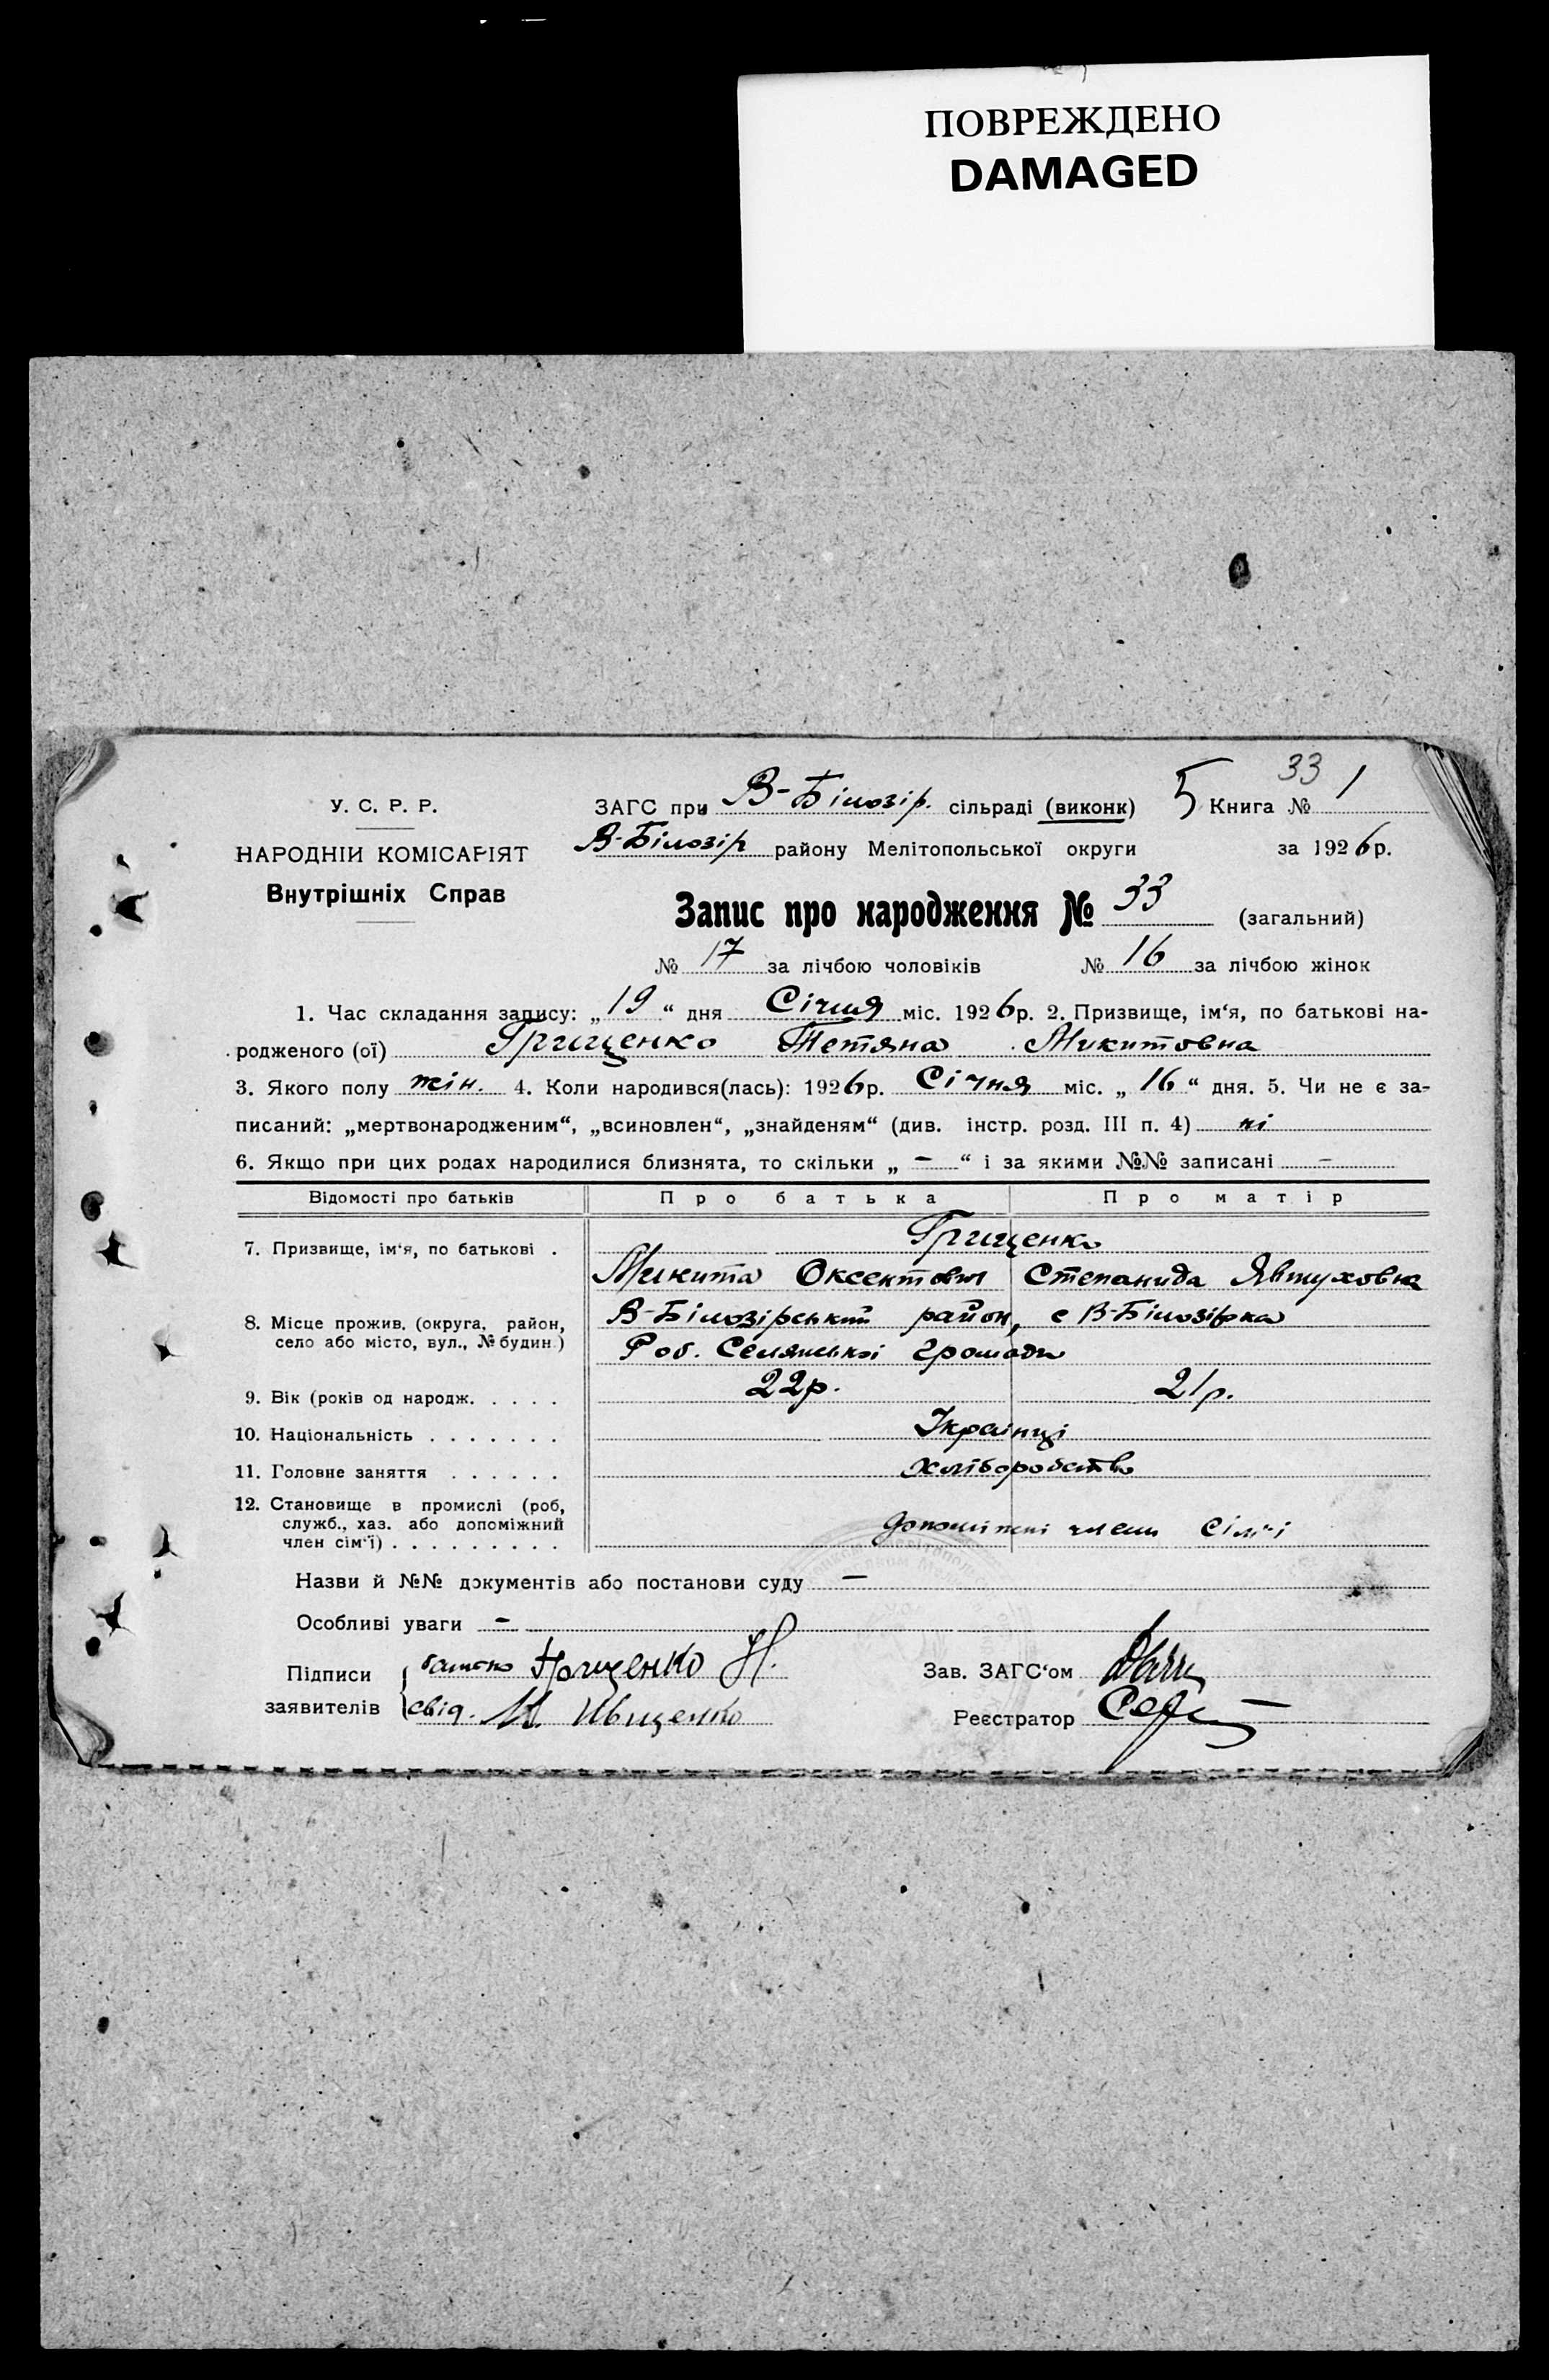 ПОВРЕЖДЕНО
DAMAGED
33
У. С. Р. Р.
ЗАГС при В-Білозір. сільраді (виконк) 5 Книга № 1
НАРОДНІЙ КОМІСАРІЯТ
В-Білозір району Мелітопольської округи за 1926 р.
Внутрішніх Справ
Запис про народження № 33 (загальний)
№ 17 за лічбою чоловіків № 16 за лічбою жінок
1. Час складання запису: „19“ дня Січня міс. 1926 р. 2. Призвище, ім‘я, по батькові на-
родженого (ої) Грищенко Тетяна Микитовна
3. Якого полу жін. 4. Коли народився(лась): 1926 р. Січня міс. „16“ дня. 5. Чи не є за-
писаний: „мертвонародженим“, „всиновлен“, „знайденям“ (див. інстр. розд. III п. 4) ні
6. Якщо при цих родах народилися близнята, то скільки „ – “ і за якими №№ записані –
Відомості про батьків Про батька Про матір
7. Призвище, ім‘я, по батькові . Грищенко
Микита Оксентович Степанида Явтуховна
8. Місце прожив. (округа, район, В-Білозірський район, с В-Білозірка
село або місто, вул., № будин.) Роб. Селянської громади
9. Вік (років од народж. . . . . 22 р. 21 р.
10. Національність . . . . . . . Українці
11. Головне заняття . . . . . . хліборобство
12. Становище в промислі (роб,
служб., хаз. або допоміжний допоміжні члени сім'ї
член сім‘ї) . . . . . . . . .
Назви й №№ документів або постанови суду –
Особливі уваги –
Підписи батько Грищенко Н. Зав. ЗАГС‘ом
заявителів свід. Реєстратор